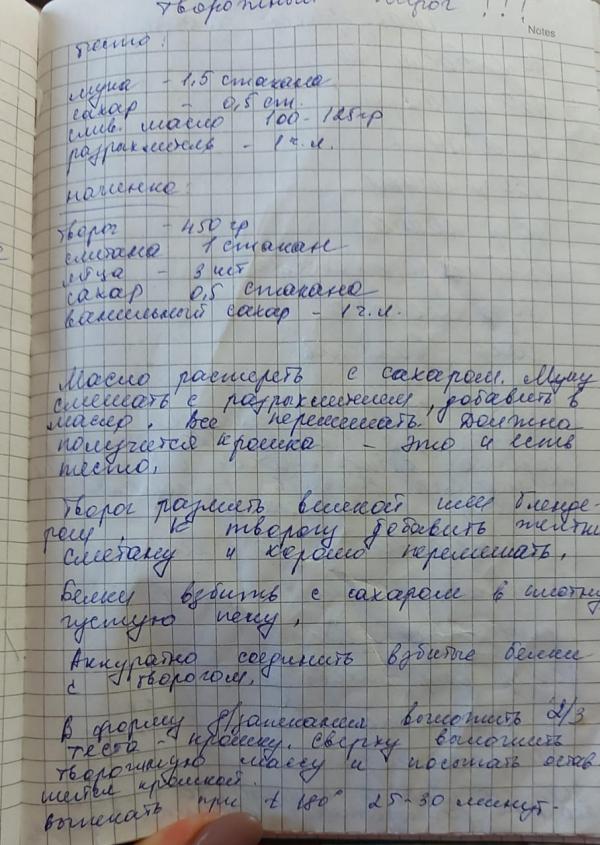 Творожный пирог !!!
Notes
тесто:
мука - 1,5 стакана
сахар - 0,5 ст.
слив. масло 100-125 гр
разрыхлитель - 1 ч.л.
начинка:
творог - 450 гр
сметана 1 стакан
яйца - 3 шт
сахар 0,5 стакана
ванильный сахар - 1 ч.л.
Масло растереть с сахаром. Муку
смешать с разрыхлителем, добавить в
масло. Все перемешать. Должна
получится крошка - это и есть
тесто.
Творог размять вилкой или бленде-
ром. К творогу добавить желтки
сметану и хорошо перемешать.
Белки взбить с сахаром в плотную
густую пену.
Аккуратно соединить взбитые белки
с творогом.
В форму д/запекания выложить 2/3
теста - крошки. сверху выложить
творожную массу и посыпать остав
шейся крошкой.
выпекать при t 180° 25-30 минут.